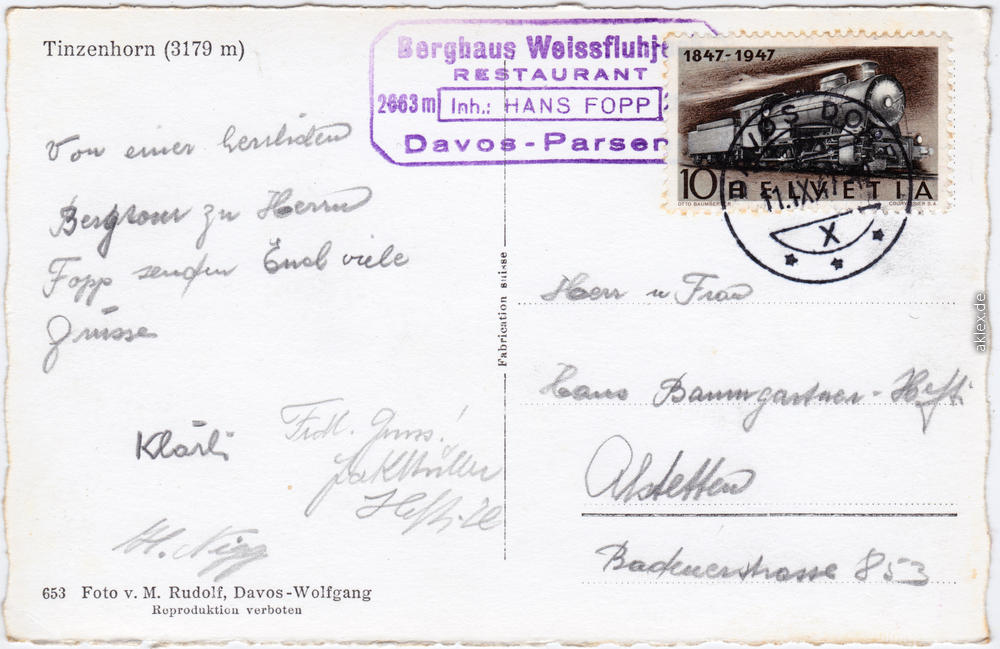 Tinzenhorn (3179 m)
Berghaus Weissfluhj
RESTAURANT
2663 m Inh.: HANS FOPP
Davos-Parsen
1847-1947
10 HELVETIA
OTTO BAUMBERGER COURVOISIER S.A.
DAVOS DO
11.IX
X
Von einer herrlichen
Bergtour zu Herrn
Fopp senden Euch viele
Grüsse
Klärli
Frdl. Gruss!
H. Nigg
Fabrication suisse
Herr u Frau
Hans Baumgartner-Hefti
Altstetten
Badenerstrasse 853
653 Foto v. M. Rudolf, Davos-Wolfgang
Reproduktion verboten
aklex.de